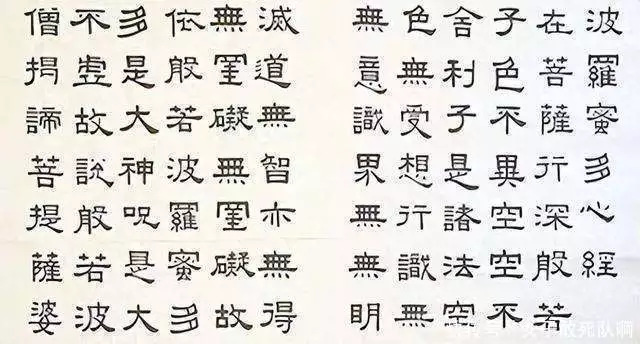 波羅蜜多心經
在菩薩行深般若
子色不異空空不
舍利子是諸法空
色無受想行識無
無意識界無無明
滅道無智亦無得
無罣礙無罣礙故
依般若波羅蜜多
多是大神咒是大
不虛故說般若波
僧揭諦菩提薩婆
敢死队啊